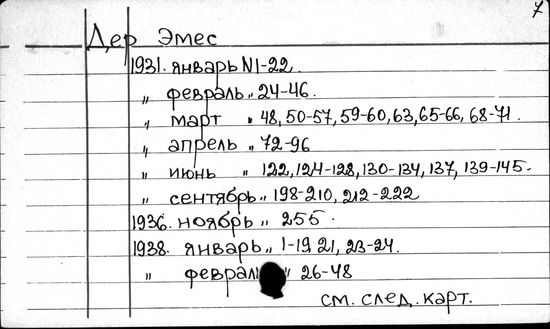 7
Дер Эмес
1931. январь N1-22.
„ февраль „ 24-46.
„ март „ 48, 50-57, 59-60, 63, 65-66, 68-71.
„ апрель „ 72-96
„ июнь „ 122, 124-128, 130-134, 137, 139-145.
„ сентябрь „ 198-210, 212-222
1936. ноябрь „ 255.
1938. январь „ 1-19 21, 23-24.
„ феврал „ 26-48
см. след. карт.